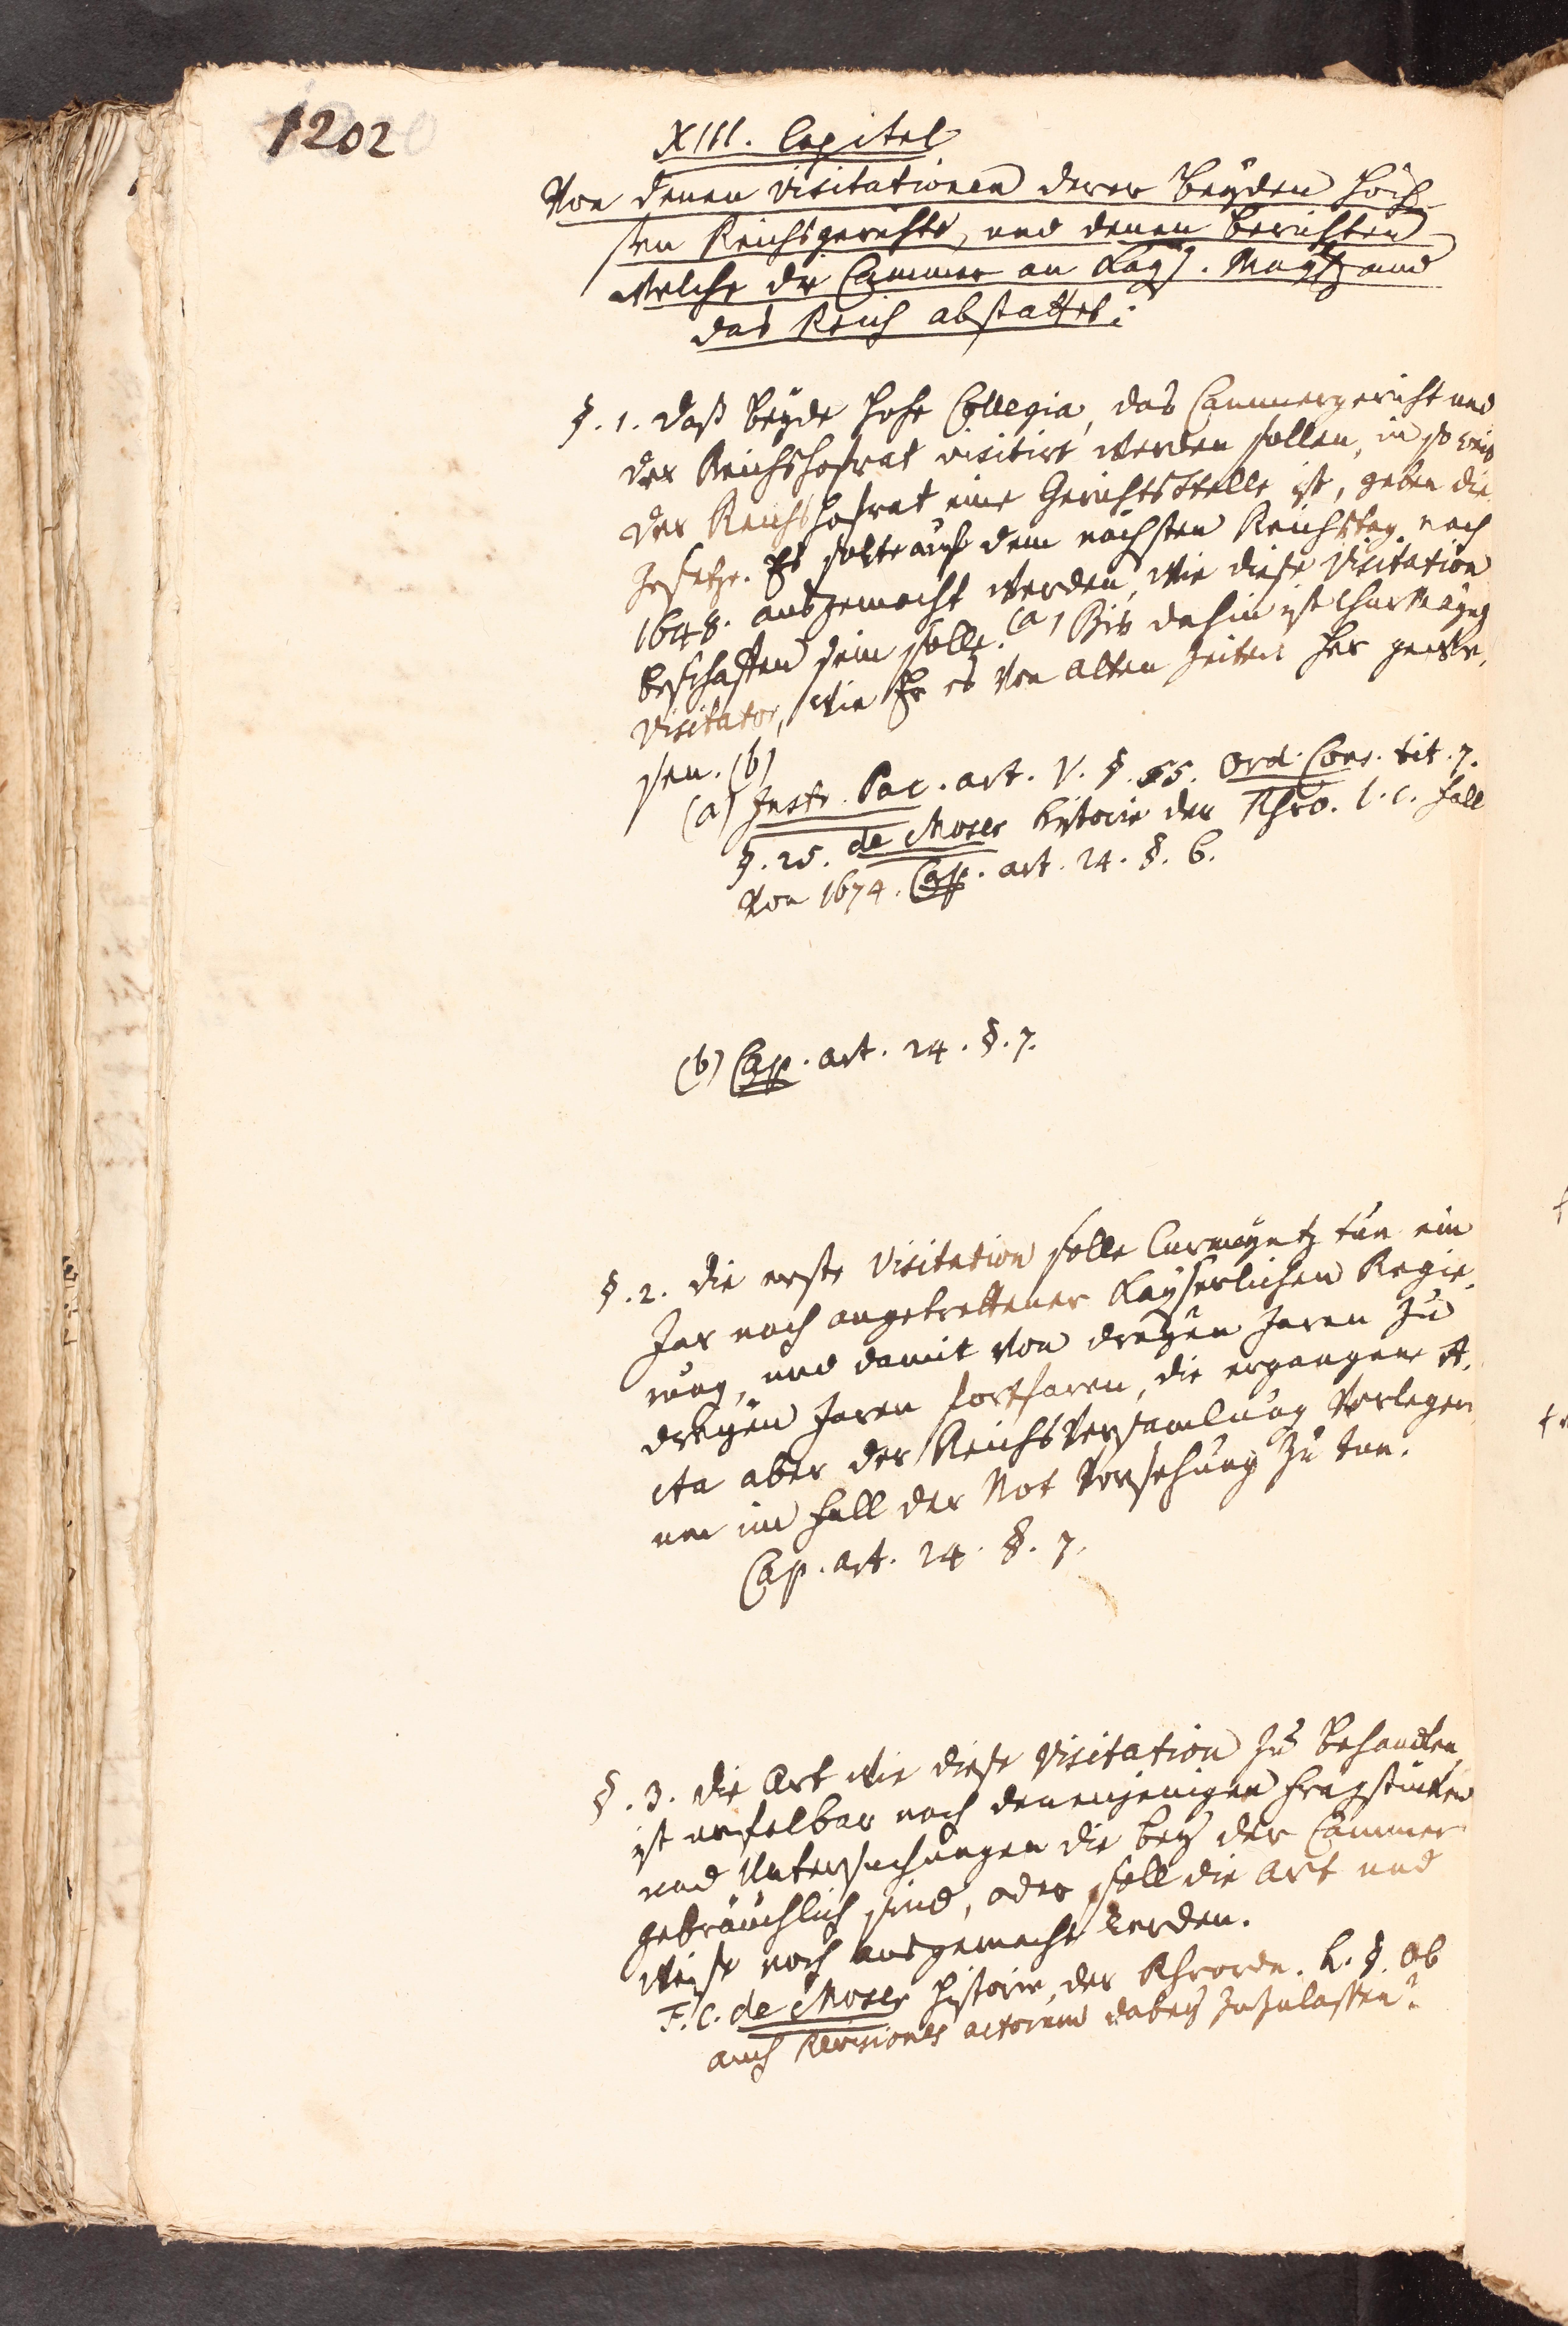 1202
XIII. Capitel
Von denen Visitationen derer beyden höch-
sten Reichsgerichte, und denen Berichten
welche die Cammer an Kays. Mayt. und
das Reich abstattet.
§. 1. Daß beyde hohe Collegia, das Cammergericht und
der Reichshofrat visitirt werden sollen, in so weit
der Reichshofrat eine Gerichtsstelle ist, geben die
Gesetze. Es solte auf dem nächsten Reichstag nach
1648. ausgemacht werden, wie diese Visitation
beschaffen sein solle. (a) Bis dahin ist ChurMaynz
Visitator, wie Er es von alten Zeiten her gewe-
sen. (b)
(a) Instr. Pac. art. V. §. 55. Ord. Conc. tit. 7.
§. 25. de Moser Historie der Rhro. l. c. Fall
von 1674. Cap. art. 24. §. 6.
(b) Cap. art. 24. §. 7.
§. 2. Die erste Visitation solle Curmayntz tun ein
Jar nach angetrettener Kayserlichen Regie-
rung, und damit von dreyen Jaren zu
dreyen Jaren fortfaren, die ergangene A-
cta aber der Reichsversamlung vorlegen
um im Fall der Not Vorsehung zu tun.
Cap. art. 24. §. 7.
§. 3. Die Art wie diese Visitation zu behandlen,
ist nach denenjenigen Fragstücken
und Untersuchungen die bey der Cammer
gebräuchlich sind, oder soll die Art und
Weise noch ausgemacht werden.
F. C. de Moser Historie der Rhrordn. h. §. Ob
auch Revisiones actorum dabey zuzulassen?